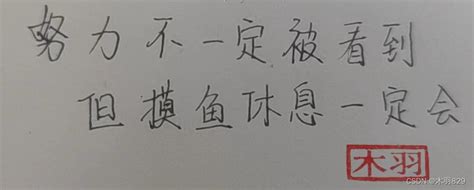 努力不一定被看到
但摸鱼休息一定会
木羽
CSDN @木羽829